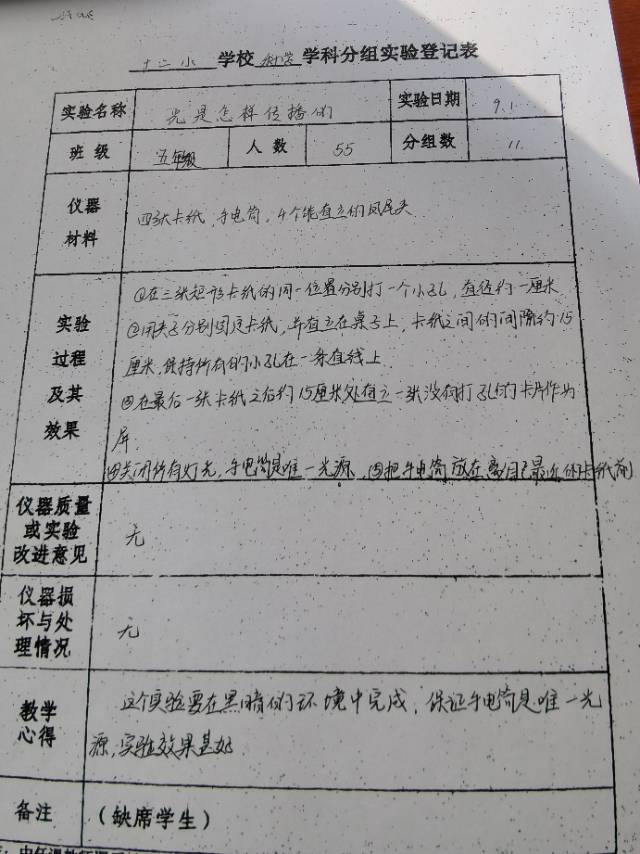 十二小 学校 科学 学科分组实验登记表
实验名称 光是怎样传播的 实验日期 9.1
班级 五年级 人数 55 分组数 11
仪器材料 四张卡纸,手电筒,4个能直立的凤尾夹
实验过程及其效果
①在三张矩形卡纸的同一位置分别打一个小孔,直径约一厘米
②用夹子分别固定卡纸,并直立在桌子上,卡纸之间的间隔约15
厘米,保持所有的小孔在一条直线上
③在最后一张卡纸之后约15厘米处直立一张没有打孔的卡片作为
屏
④关闭所有灯光,手电筒是唯一光源,⑤把手电筒放在离自己最近的卡纸前
仪器质量或实验改进意见 无
仪器损坏与处理情况 无
教学心得
这个实验要在黑暗的环境中完成,保证手电筒是唯一光
源,实验效果甚好.
备注 (缺席学生)